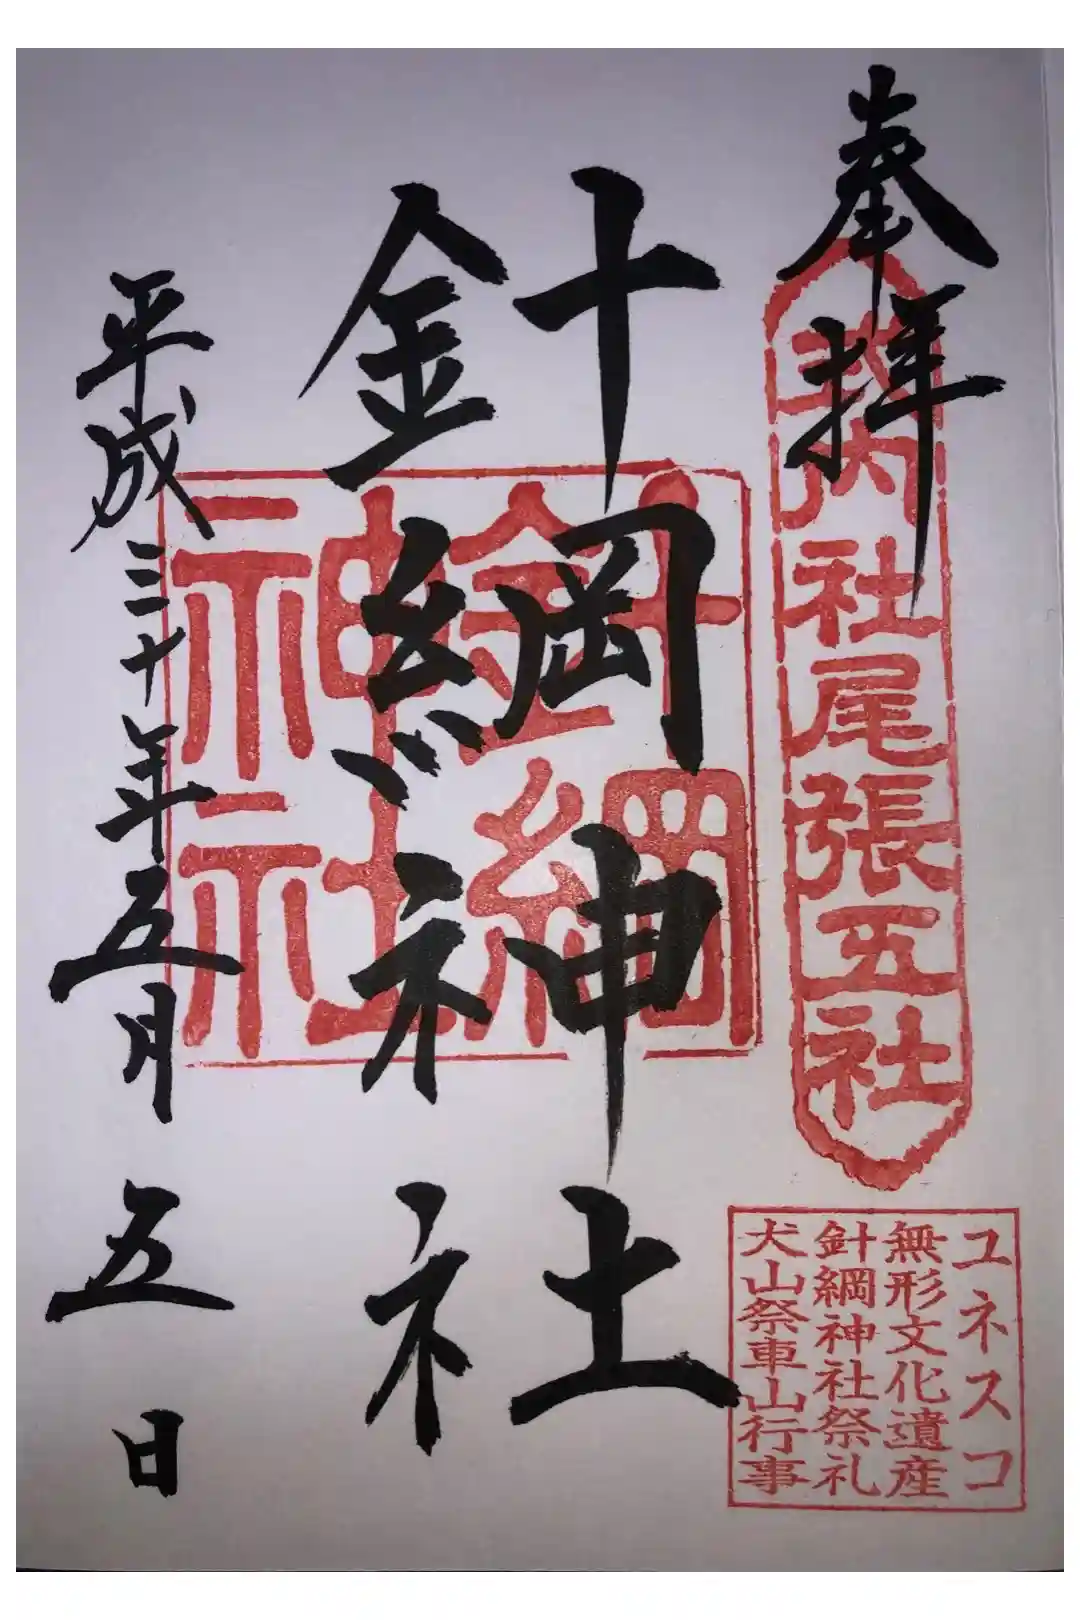 奉拝
式内社尾張五社
ユネスコ
無形文化遺産
針綱神社祭礼
犬山祭車山行事
針綱神社
針綱
神社
平成三十年五月五日